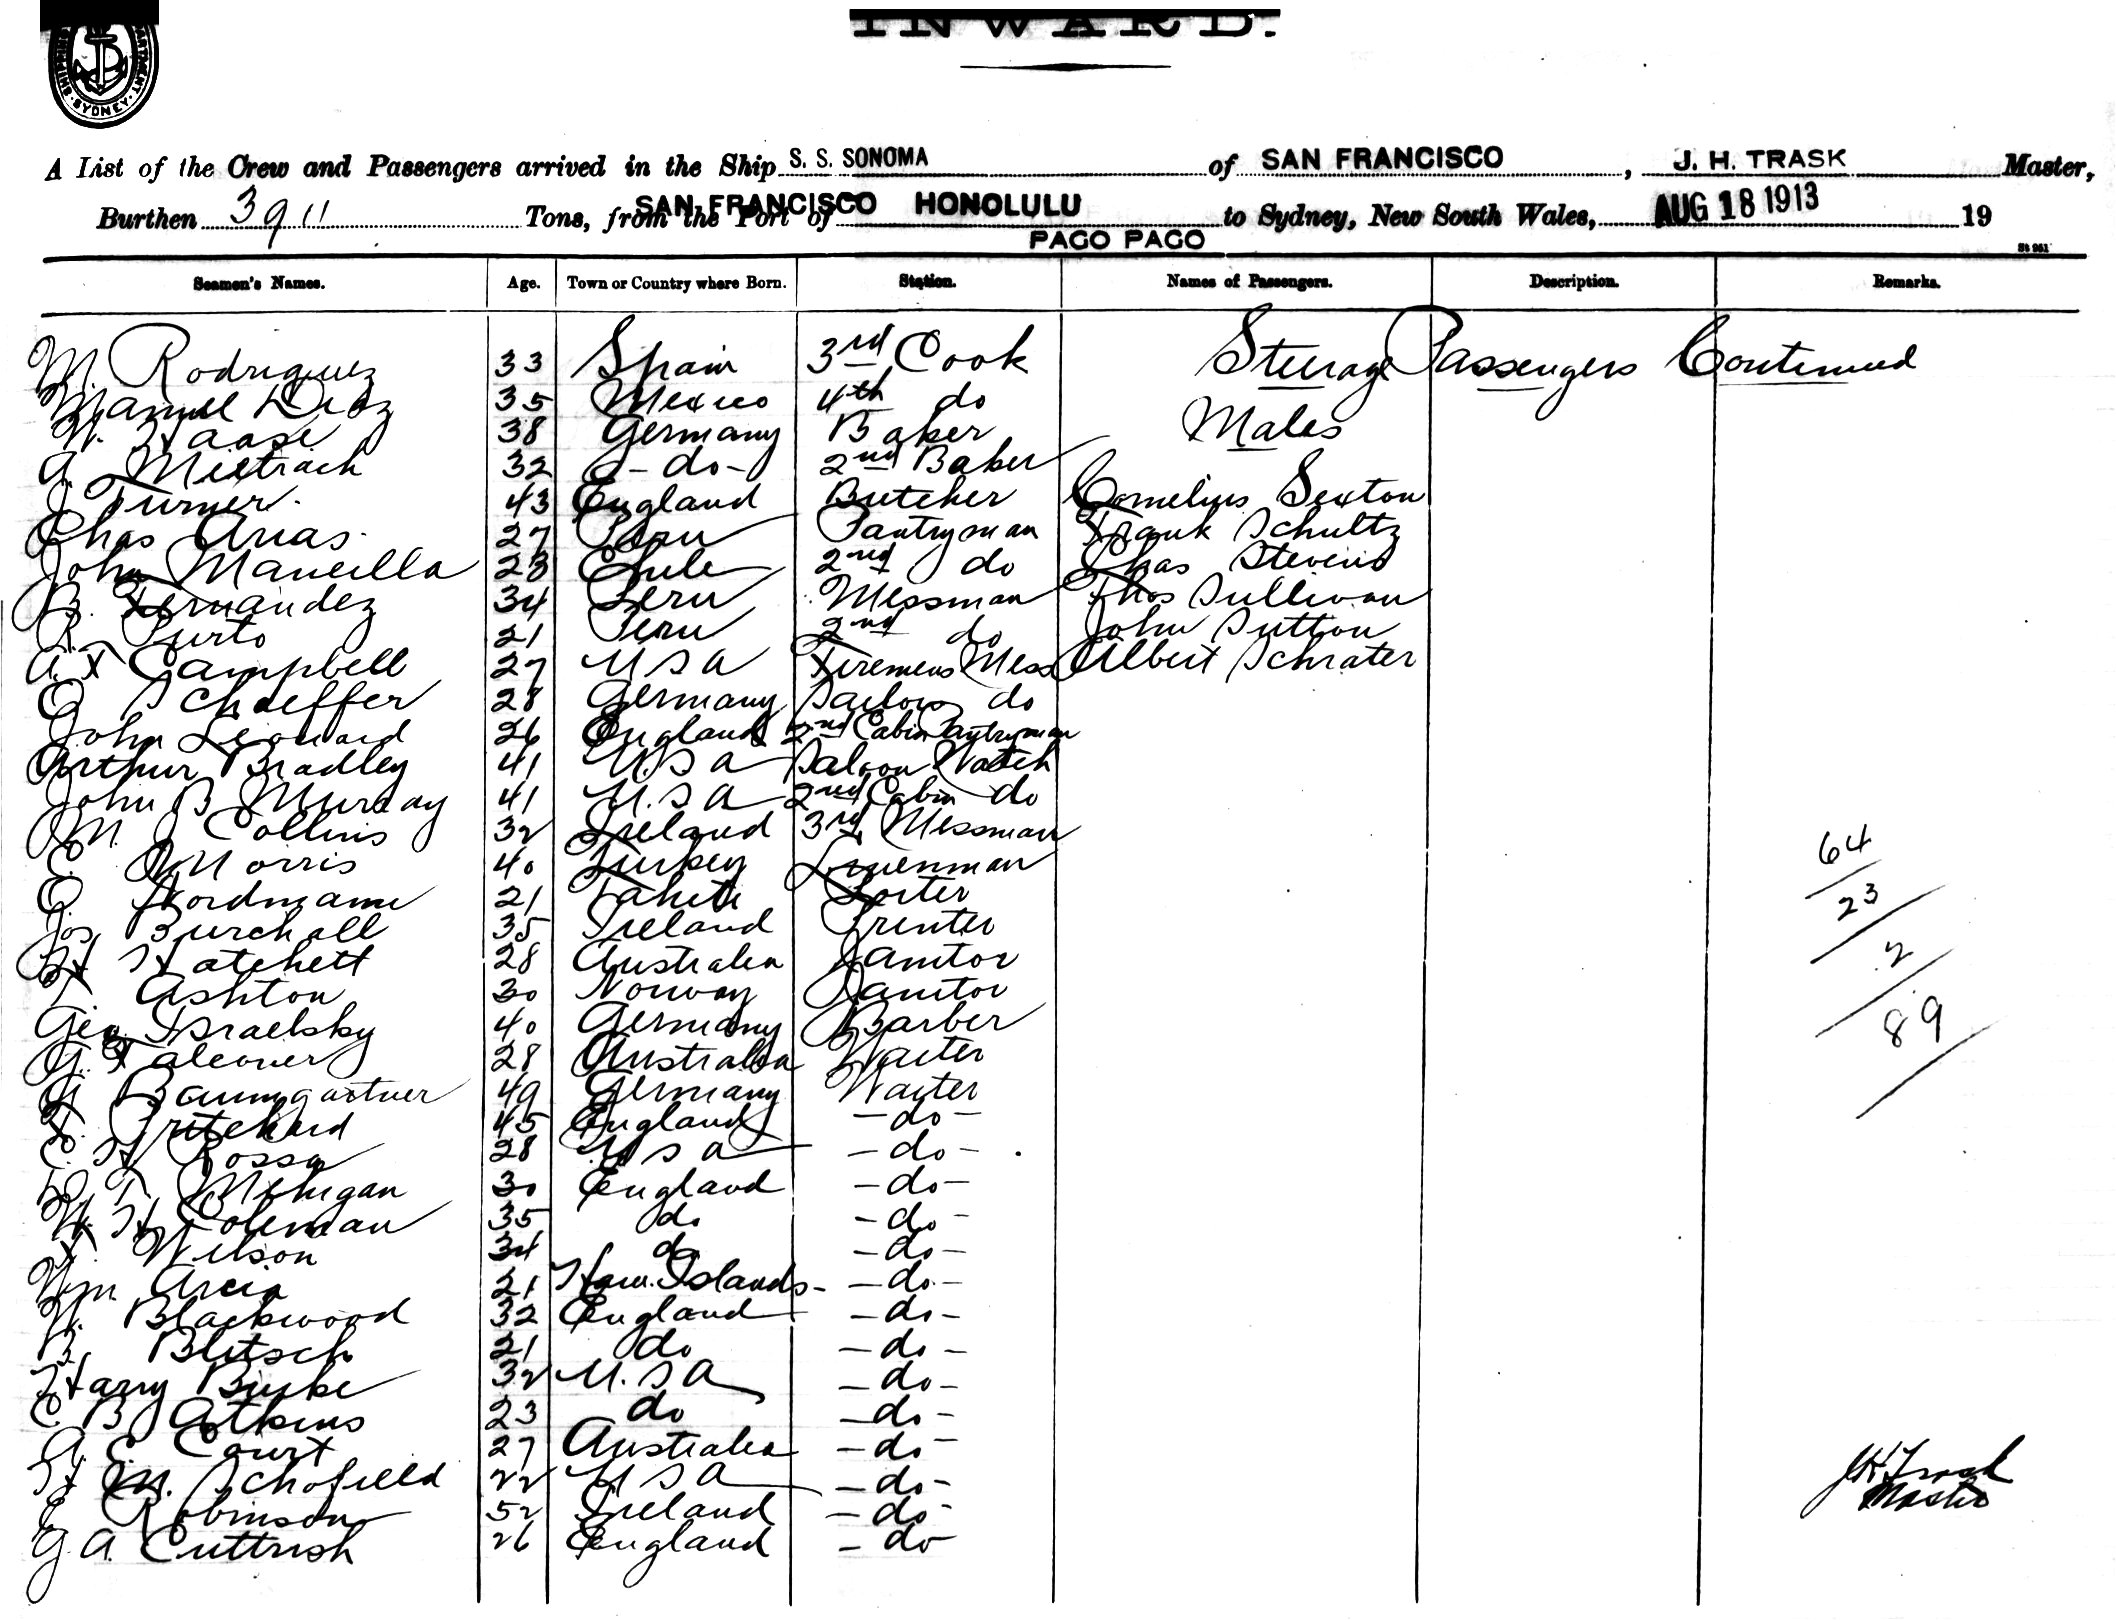 INWARD.
SYDNEY
A List of the Crew and Passengers arrived in the Ship S. S. SONOMA of SAN FRANCISCO, J. H. TRASK Master,
Burthen 3911 Tons, from the Port of SAN FRANCISCO HONOLULU to Sydney, New South Wales, AUG 18 1913 19
PAGO PAGO
St 961
Seamen's Names. Age. Town or Country where Born. Station. Names of Passengers. Description. Remarks.
M. Rodriguez 33 Spain 3rd Cook Steerage Passengers Continued
Manuel Diaz 35 Mexico 4th do
W. Haase 38 Germany Baker Males
A. Mietrach 32 - do - 2nd Baker
J Turner 43 England Butcher Cornelius Sexton
Chas Arias 27 Peru Pantryman Frank Schultz
John Mancilla 23 Chile 2nd do Chas Stevens
B. Fernandez 34 Peru Messman Thos Sullivan
R. Purto 21 Peru 2nd do John Sutton
A. F Campbell 27 U S A Firemens Mess Albert Schrater
O Schaeffer 28 Germany Sailors do
John Leonard 26 England 2nd Cabin Pantryman
Arthur Bradley 41 U. S A Saloon Watch
John B Murray 41 U. S A 2nd Cabin do
M. J Collins 32 Ireland 3rd Messman
E. Morris 40 Turkey Linenman
O Nordmann 21 Tahiti Porter
Jos Burchall 35 Ireland Printer
H Hatchett 28 Australia Janitor
Ashton 30 Norway Janitor
Geo Israelsky 40 Germany Barber
G. Falconer 28 Australia Waiter
A Baumgartner 49 Germany Waiter
F. Pritchard 45 England - do -
C. H Rossa 28 U S A - do -
D T Mehigan 30 England - do -
W. H Coleman 35 do - do -
F Wilson 34 do - do -
Wm Arcia 21 Haw. Islands - do -
W. Blackwood 32 England - do -
R. Blitsch 21 do - do -
Harry Burke 32 U. S A - do -
C B Atkins 23 do - do -
A. E. Court 27 Australia - do -
H M. Schofield 22 U S A - do -
E Robinson 52 Ireland - do -
G A. Cuttrish 26 England - do
64
23
2
89
JH Trask
Master